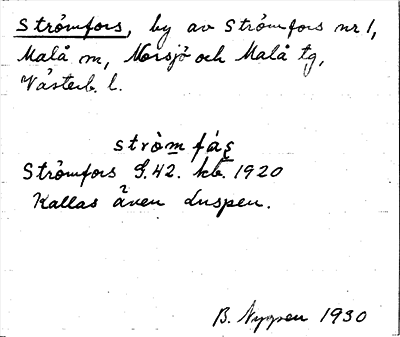 Strömfors, by av Strömfors nr 1,
Malå sn, Norsjö och Malå tg,
Västerb. l.
strò̀m fáş
Strömfors S.42. kb. 1920
Kallas även Luspen.
B. Nyppen 1930